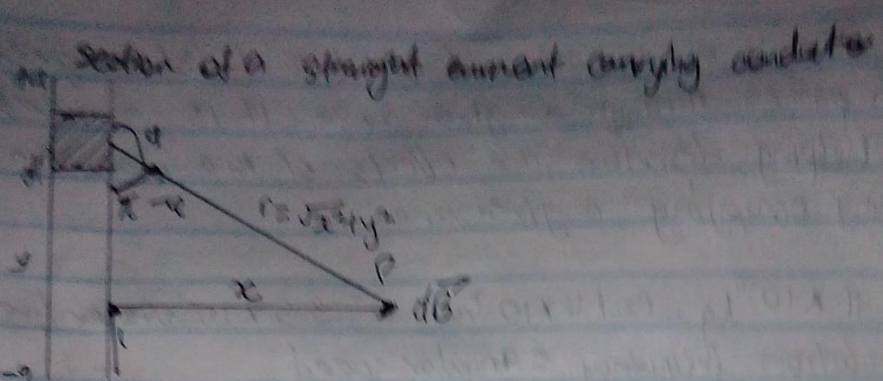 Section of a straight current carrying conductor
α
π - α
r = √x²+y²
y
P
x
dB⃗